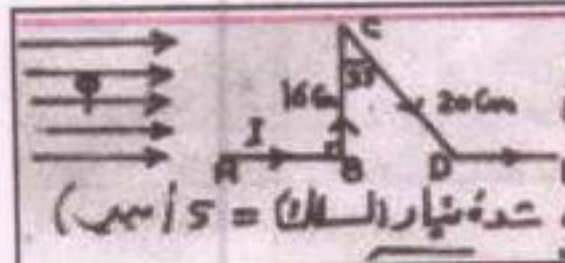 C
37
16Cm
20Cm
Φ
I
A B D
شدة تيار (السلك) = 5 أمبير)